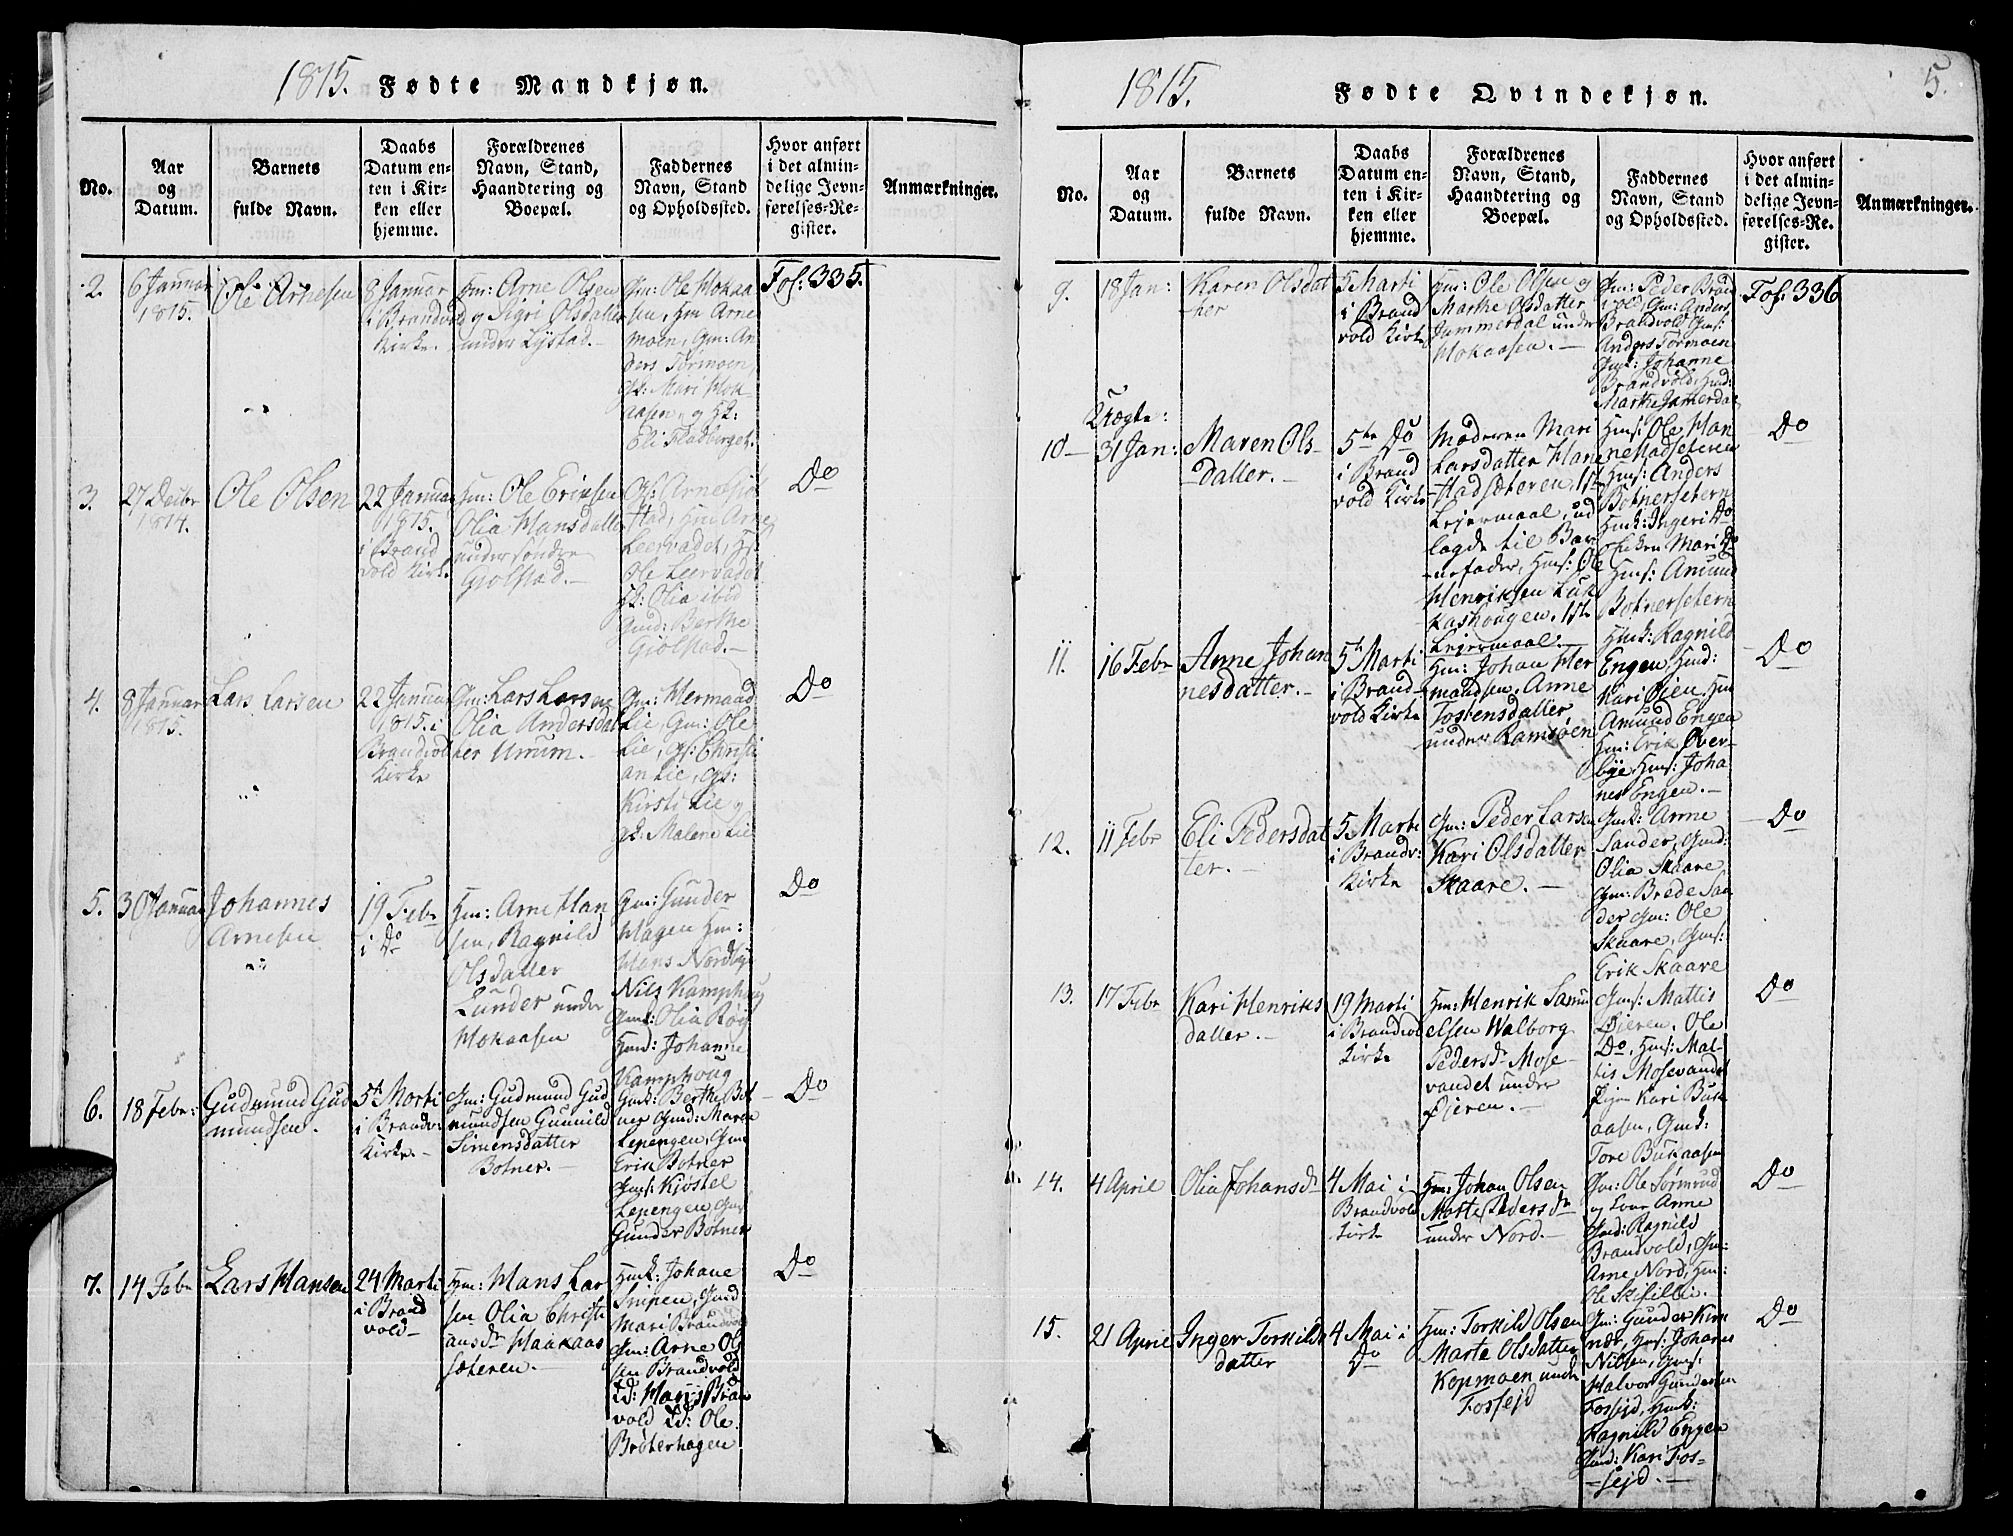 1815. Fødte Mandkjøn.
No.
Aar
og
Datum.
Barnets
fulde Navn.
Daabs
Datum en-
ten i Kir-
ken eller
hjemme.
Forældrenes
Navn, Stand,
Haandtering og
Boepæl.
Faddernes
Navn, Stand
og Opholdssted.
Hvor anført
i det almin-
delige Jevn-
førelses-Re-
gister.
Anmærkninger.
2.
6 Januar
1815.
Ole Arnesen
8 Januar
i Brandvold
Kirke.
Hm: Arne Olsen
og Sigri Olsdatter
under Lystad.
Gm: Ole Mokaa
sen, Hm Arne
moen, Gm: An
ders Tørmoen,
Gk: Mari Mok
aasen, og Hk:
Eli Fladberget.
Fol: 335.
3.
27 Decbr
1814.
Ole Olsen
22 Januar
1815.
i Brand
vold Kirke
Hm: Ole Eriksen
Olia Hansdatter
under søndre
Gjølstad.
Gs: Arne Gjøl
stad, Hm Arne
Leervadet, Hs:
Ole Leervadet
Hk: Olia ibid
Gmd: Berthe
Giølstad.
Do
4.
8 Januar
1815.
Lars Larsen
22 Januar
1815. i
Brandvold
Kirke
Gm: Lars Larsen
Olia Andersdat
ter Urrum.
Gm: Hermand
Lie, Gm: Ole
Lie, Gs: Christi
an Lie, Gs:
Kirsti Lie og
Gk: Malene Lie
Do
5.
30 Januar
Johannes
Arnesen
19 Febr
i Do
Hm: Arne Han
sen, Ragnild
Olsdatter
Lunder under
Mokaasen
Gm: Gunder
Hagen Hm:
Hans Nordbye
Nils Kamphoug
Gmk: Olia Røg
Hmd: Johanne
Kamphoug
Do
6.
18 Febr:
Gudmund Gud
mundsen.
5te Marti
i Brandv:
Kirke.
Gm: Gudmund Gud
mundsen Gunnild
Simensdatter
Botner.
Gmk: Berthe Bot
ner Gmd: Maren
Lepengen, Gm:
Erik Botner
Gms: Kjøstel
Lepengen, Gms
Gunder Botner
Do
7.
14 Febr
Lars Hansen
24 Marti
i Brand
vold
Hm: Hans Lar
sen Olia Christi
ansdr Haakaas
sæteren.
Hmk: Johane
Snipen, Gmd
Mari Brandvold
Gm: Arne Ol
sen Brandvold
Ld: Hans Bran
vold Ld: Ole
Brøterhagen
Do
1815. Fødte Qvindekjøn.
5.
No.
Aar
og
Datum.
Barnets
fulde Navn.
Daabs
Datum en-
ten i Kir-
ken eller
hjemme.
Forældrenes
Navn, Stand,
Haandtering og
Boepæl.
Faddernes
Navn, Stand
og Opholdssted.
Hvor anført
i det almin-
delige Jevn-
førelses-Re-
gister.
Anmærkninger.
9.
18 Jan:
Karen Olsdat
ter
5 Marti
i Brand
vold Kirke
Hm: Ole Olsen og
Marthe Olsdatter
Jammerdal under
Mokaasen.
Gm: Peder Brand
vold, Gm: Anders
Brandvold Gms:
Anders Tørmoen
Gmk: Johanne
Brandvold, Hmd:
Marthe Jamerdal
Fol. 336
Uægte:
10
31 Jan:
Maren Ols-
datter.
5te Do
i Brand
vold Kirke
Moderen Mari
Larsdatter Han
stadsæteren, 1ste
Leiermaal, ud
lagde til Bar
nefader, Hms: Ole
Henriksen Luk
kashougen, 1ste
Leiermaal.
Hms: Ole Han
nestadseteren
Hms: Anders
Botnersetern
Hmk: Ingeri Do
Piken Mari Do
Hms: Amund
Botnersetern
Hmk: Ragnild
Do
11.
16 Febr
Anne Johan
nesdatter.
5te Marti
i Brand
vold Kirke
Hm: Johan Her
mandsen, Anne
Tostensdatter
under Ramsøen
Engen, Hmd:
Kari Øien, Hm
Amund Engen
Hm: Erik Over-
bye, Hms: Joha
nes Engen.
Do
12.
11 Febr
Eli Pedersdat
ter.
5 Marti
i Brandv:
Kirke
Gm: Peder Larsen
Kari Olsdatter
Skaare.
Gmk: Anne
Sander, Gmd:
Olia Skaare
Gm: Brede San
der Gm: Ole
Skaare, Gms:
Erik Skaare
Do
13.
17 Febr
Kari Henriks
datter.
19 Marti
i Brandvold
Kirke
Hm: Henrik Samu
elsen Walborg
Pedersdr Mose-
vandet under
Øieren.
Gms: Mattis
Øieren, Ole
Do, Hms: Mat-
tis Mosevandet
Pigen Kari Buk
aasen, Gmk:
Tore Bukaasen
Do
14.
4 April
Olia Johansdr
4 Mai i
Brandvold
Kirke
Hm: Johan Olsen
Marte Pedersdr
under Nord.
Gm: Ole Sørmrud
og Kone Anne
Gmd: Ragnild
Brandvold, Gm:
Arne Nord, Hm:
Ole Skifillen.
Do
15.
21 April
Inger Torkilds
datter
4 Mai i
Do
Hm: Torkild Olsen
Marte Olsdatter
Kopmoen under
Fosseid
Gm: Gunder Kirk
nær, Hms: Johanes
Nilsen, Gms:
Halvor Gundersen
Fosseid, Hmk:
Ragnild Engen
Gmd: Kari Fos-
seid.
Do